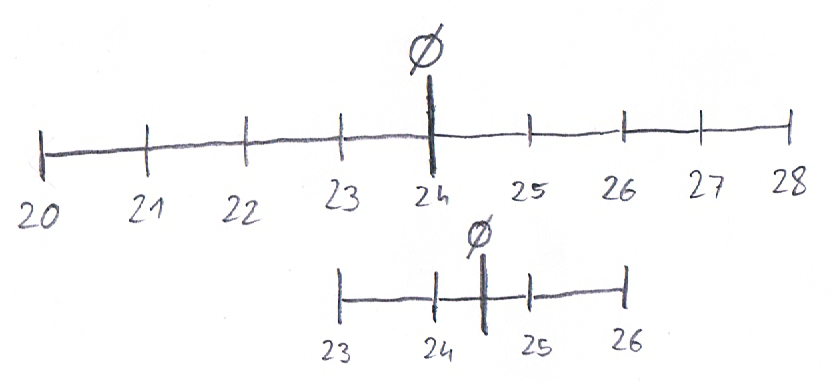 Ø
20 21 22 23 24 25 26 27 28
Ø
23 24 25 26